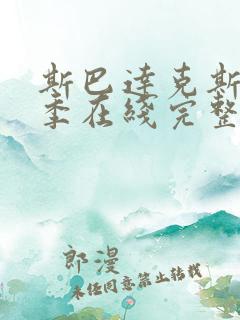 斯巴达克斯
季在线完整
郎漫
未经同意禁止转载